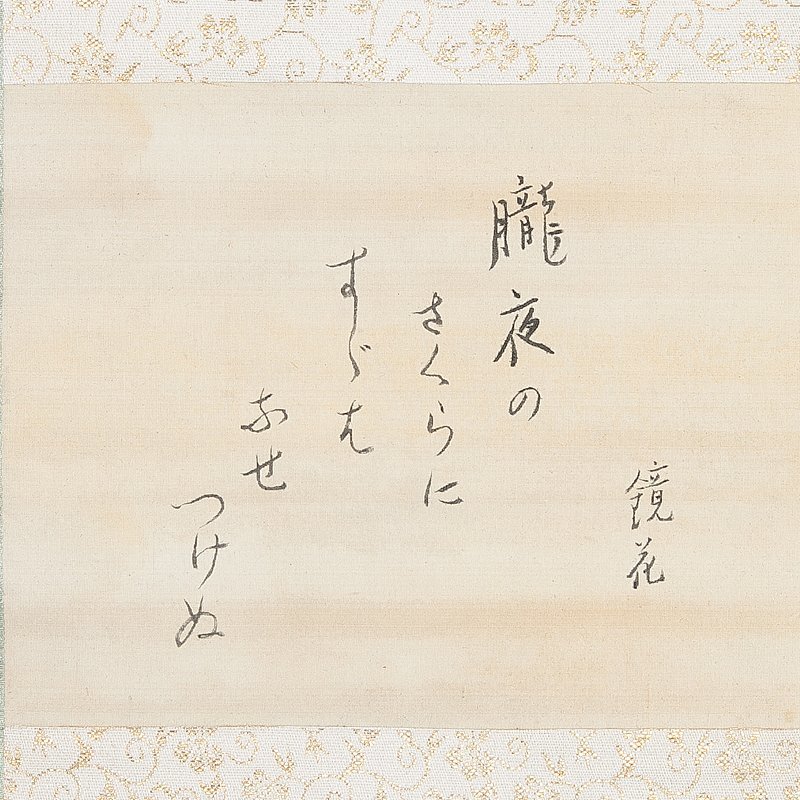 鏡花
朧夜の
さくらに
すゞは
なせ
つけぬ